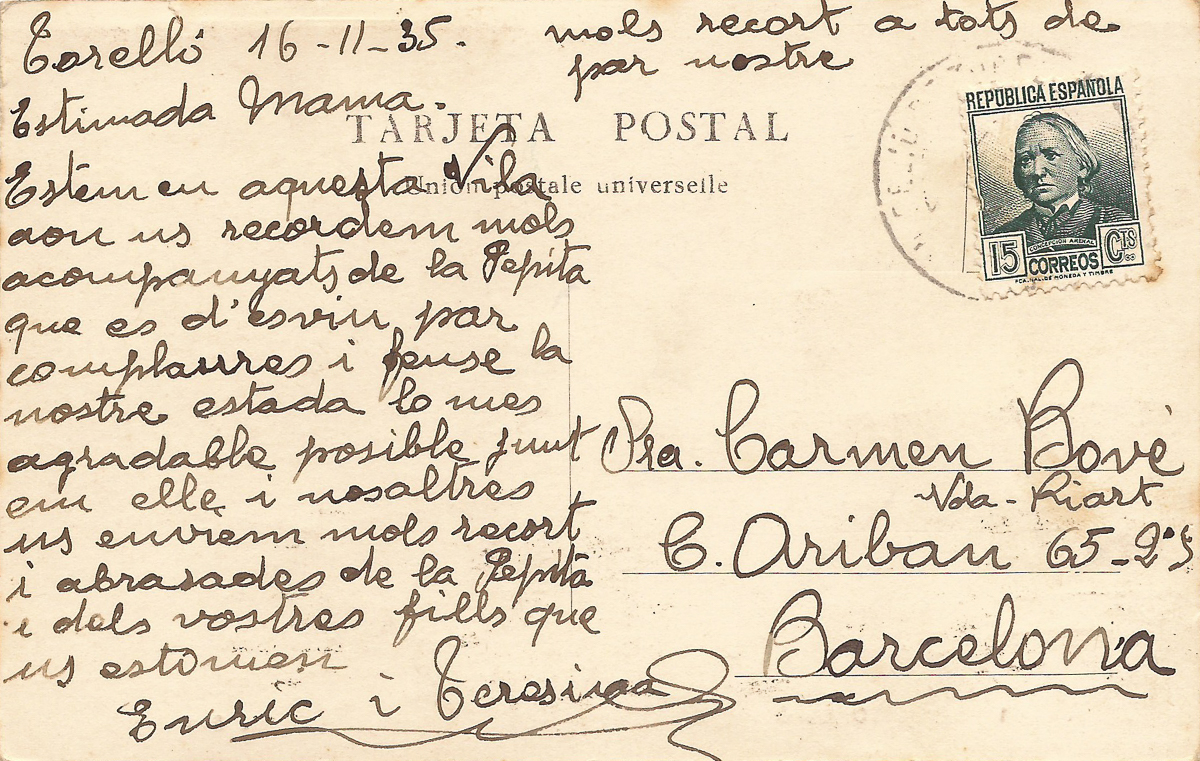 Torelló 16-11-35.
Estimada Mama.
Estem en aquesta Vila
aon us recordem mols
acompanyats de la Pepita
que es d'esviu par
complaurres i fense la
nostre estada lo mes
agradable posible junt
em elle i nosaltres
us enviem mols recort
i abrasades de la Pepita
i dels vostres fills que
us estomen
Enric i Teresina
mols recort a tots de
par nostre
TARJETA POSTAL
Union postale universelle
REPUBLICA ESPAÑOLA
CONCEPCION ARENAL
15 CORREOS CTS
FCA. NAL. DE MONEDA Y TIMBRE
Sra. Carmen Bové
Vda - Riart
C. Aribau 65-2º
Barcelona